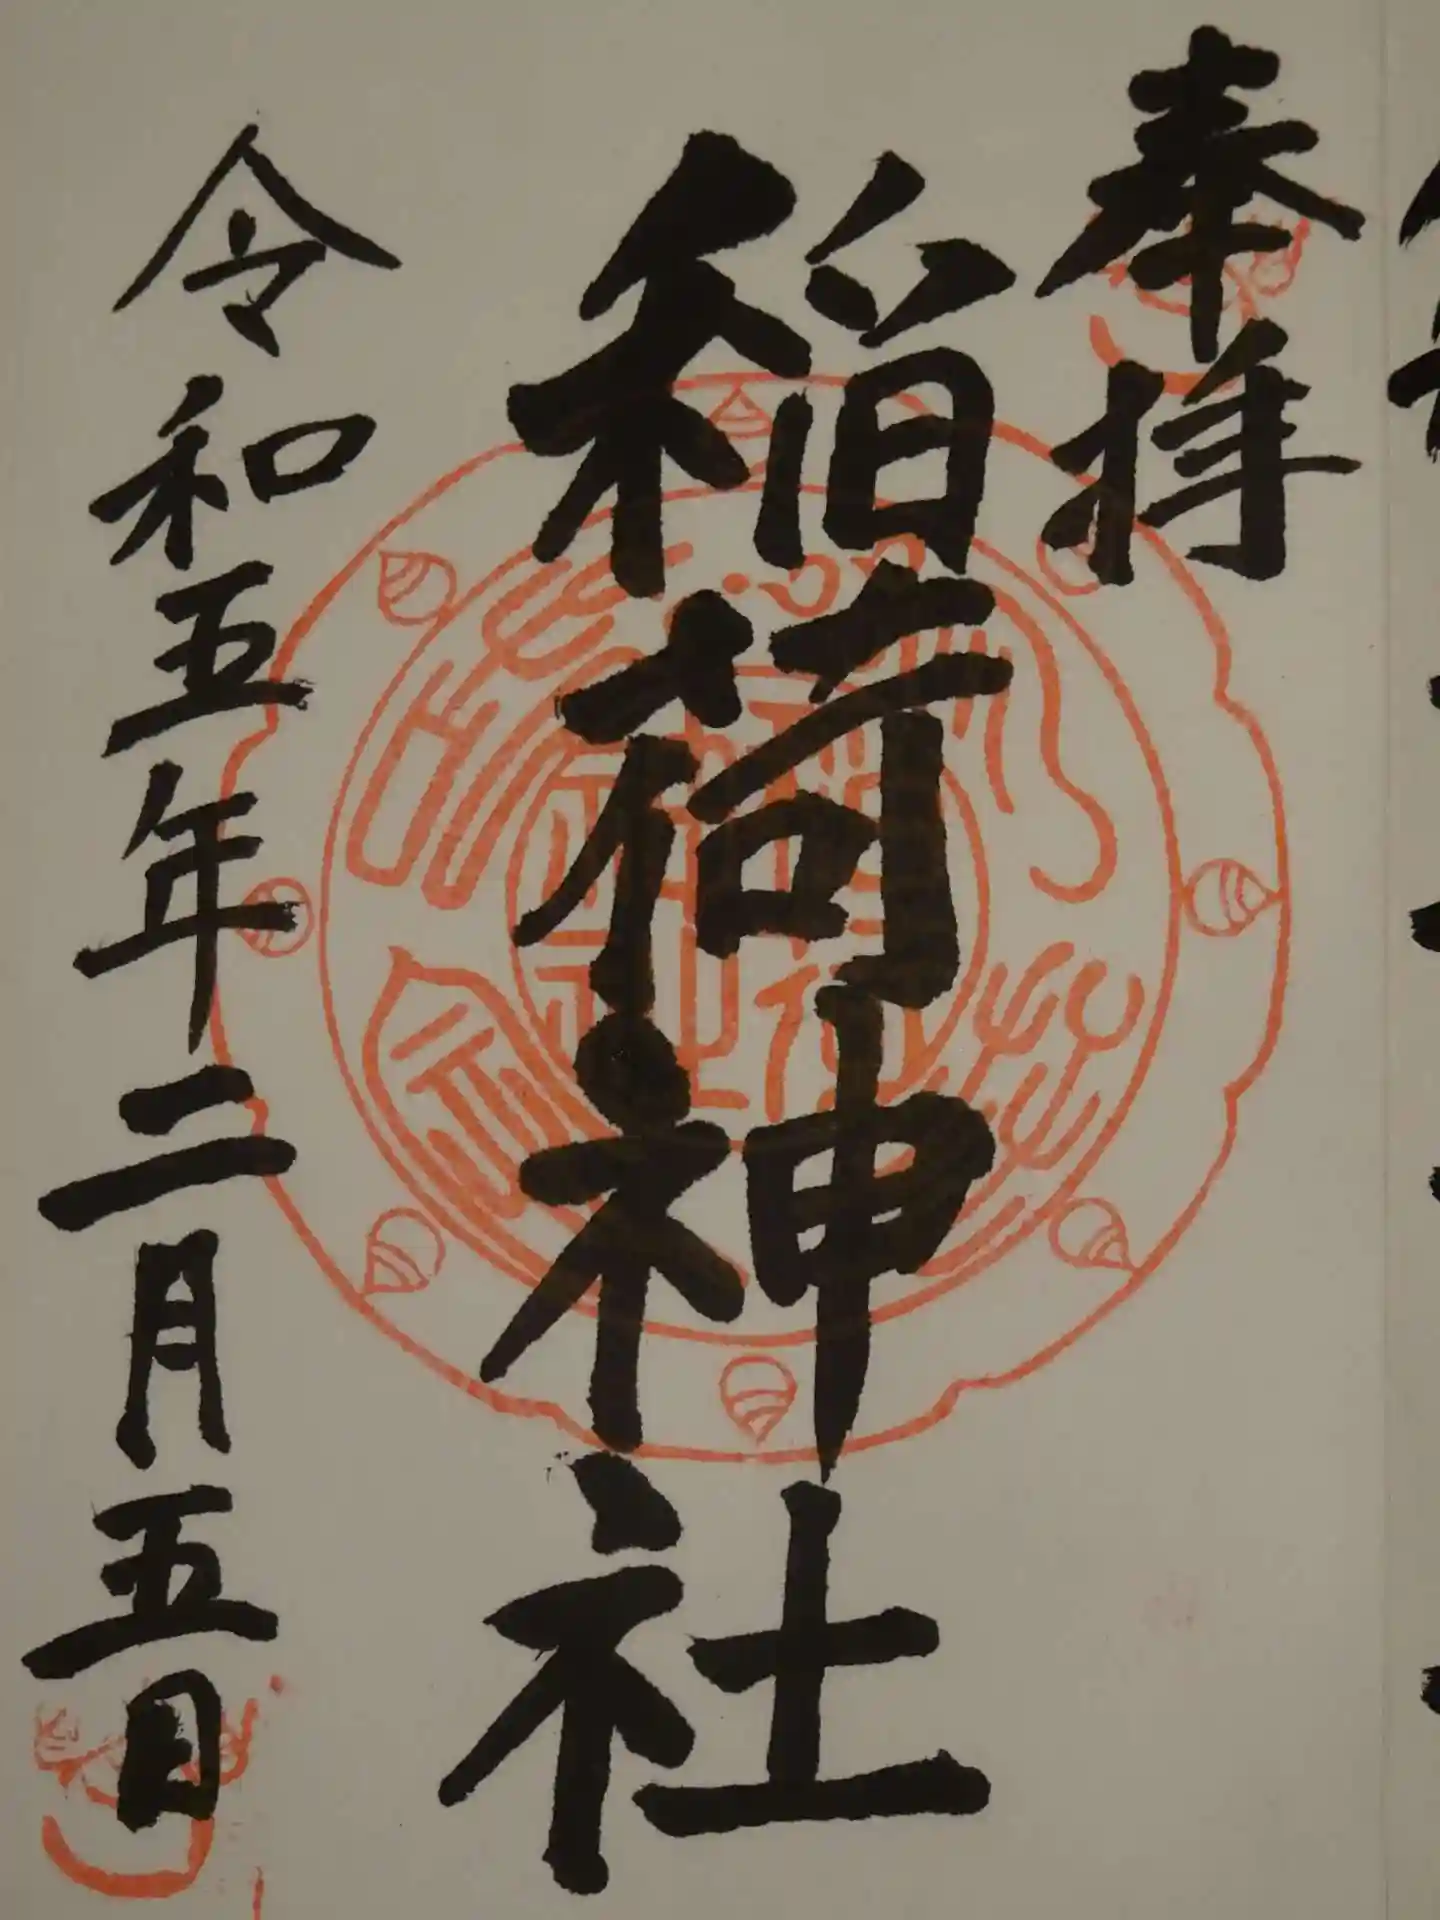 奉拝
稲荷神社
令和五年二月五日